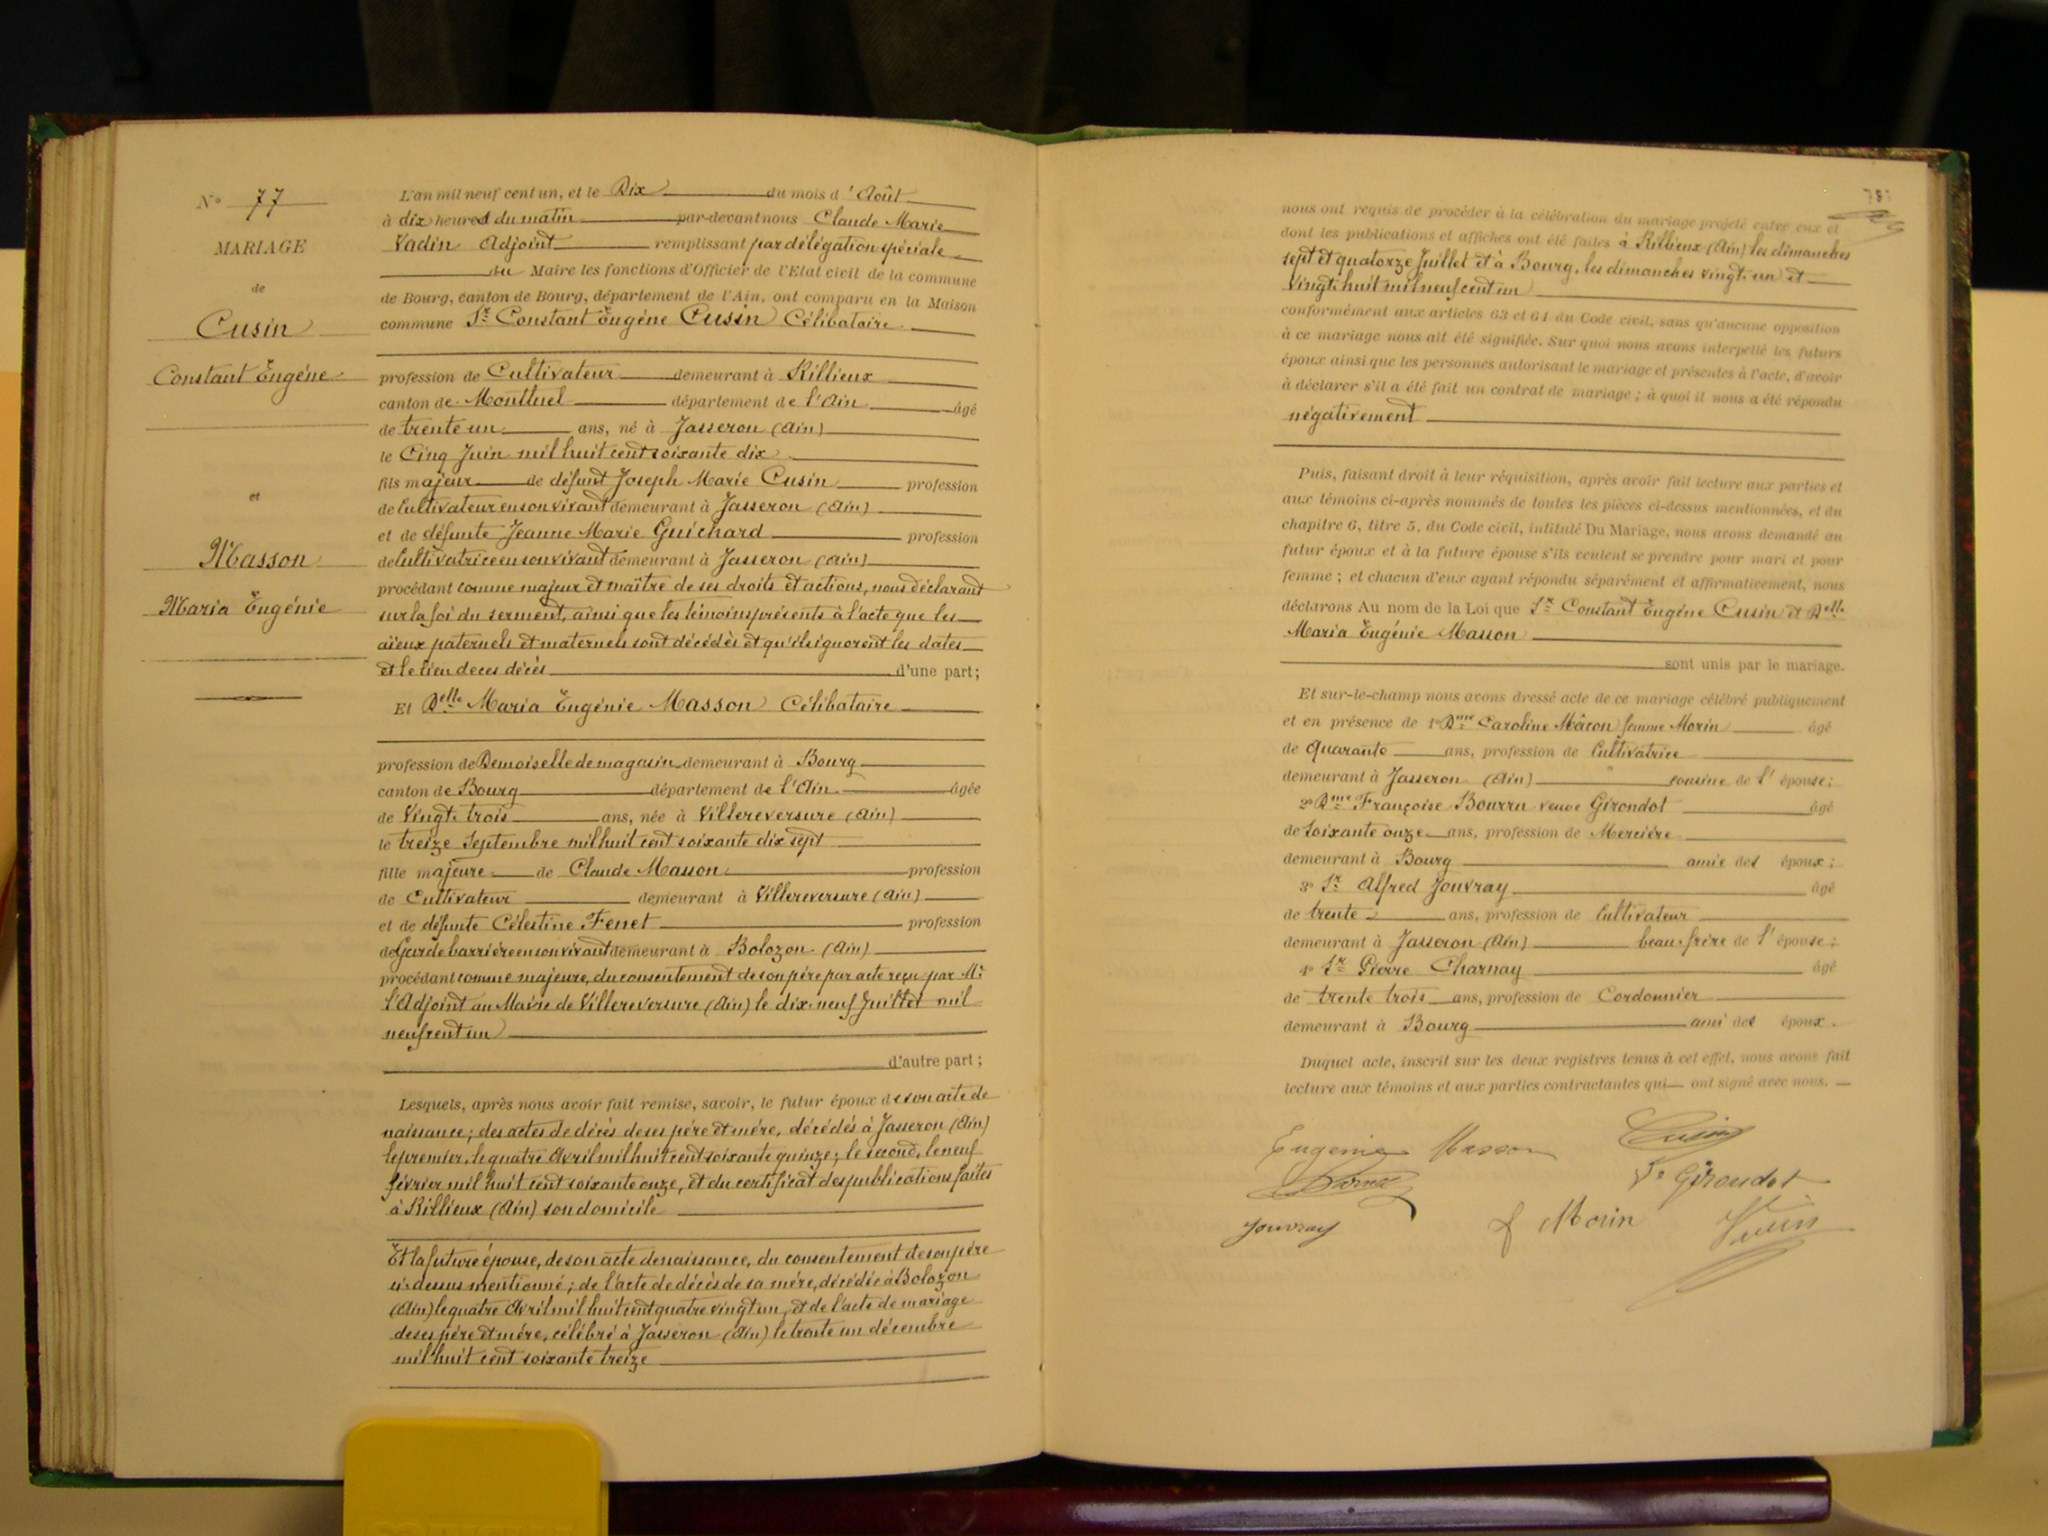 N° 77
MARIAGE
de
Cusin
Constant Eugéne
et
Masson
Maria Eugénie
L'an mil neuf cent un, et le Dix du mois d'Août
à dix heures du matin par-devant nous Claude Marie
Vadin Adjoint remplissant par délégation spéciale
du Maire les fonctions d'Officier de l'Etat civil de la commune
de Bourg, canton de Bourg, département de l'Ain, ont comparu en la Maison
commune Sr Constant Eugéne Cusin Célibataire
profession de Cultivateur demeurant à Rillieux
canton de Montluel département de l'Ain âgé
de trente un ans, né à Jasseron (Ain)
le Cinq Juin mil huit cent soixante dix
fils majeur de défunt Joseph Marie Cusin profession
de Cultivateur en son vivant demeurant à Jasseron (Ain)
et de défunte Jeanne Marie Guichard profession
de Cultivatrice en son vivant demeurant à Jasseron (Ain)
procédant comme majeur et maître de ses droits et actions, nous déclarant
sur la foi du serment, ainsi que les témoins présents à l'acte que les
aïeux paternels et maternels sont décédés et qu'ils ignorent les dates
et le lieu de ces décès d'une part;
Et Delle Maria Eugénie Masson Célibataire
profession de Demoiselle de magasin demeurant à Bourg
canton de Bourg département de l'Ain âgée
de Vingt trois ans, née à Villereversure (Ain)
le treize Septembre mil huit cent soixante dix sept
fille majeure de Claude Masson profession
de Cultivateur demeurant à Villereversure (Ain)
et de défunte Célestine Fenet profession
de Garde barrière en son vivant demeurant à Bolozon (Ain)
procédant comme majeure, du consentement de son père par acte reçu par Mr
l'Adjoint au Maire de Villereversure (Ain) le dix-neuf Juillet mil
neuf cent un
d'autre part;
Lesquels, après nous avoir fait remise, savoir, le futur époux de son acte de
naissance; des actes de décès de ses père et mère, décédés à Jasseron (Ain)
le premier, le quatre Avril mil huit cent soixante quinze; le second, le neuf
février mil huit cent soixante onze, et du certificat des publications faites
à Rillieux (Ain) son domicile
Et la future épouse, de son acte de naissance, du consentement de son père
ci-dessus mentionné; de l'acte de décès de sa mère, décédée à Bolozon
(Ain) le quatre Avril mil huit cent quatre vingt un, et de l'acte de mariage
de ses père et mère, célébré à Jasseron (Ain) le trente un décembre
mil huit cent soixante treize
nous ont requis de procéder à la célébration du mariage projeté entre eux et
dont les publications et affiches ont été faites à Rillieux (Ain) les dimanches
sept et quatorze Juillet et à Bourg, les dimanches vingt-un et
Vingt-huit mil neuf cent un
conformément aux articles 63 et 64 du Code civil, sans qu'aucune opposition
à ce mariage nous ait été signifiée. Sur quoi nous avons interpellé les futurs
époux ainsi que les personnes autorisant le mariage et présentes à l'acte, d'avoir
à déclarer s'il a été fait un contrat de mariage; à quoi il nous a été répondu
négativement
Puis, faisant droit à leur réquisition, après avoir fait lecture aux parties et
aux témoins ci-après nommés de toutes les pièces ci-dessus mentionnées, et du
chapitre 6, titre 5, du Code civil, intitulé Du Mariage, nous avons demandé au
futur époux et à la future épouse s'ils veulent se prendre pour mari et pour
femme; et chacun d'eux ayant répondu séparément et affirmativement, nous
déclarons Au nom de la Loi que Sr Constant Eugéne Cusin et Delle
Maria Eugénie Masson
sont unis par le mariage.
Et sur-le-champ nous avons dressé acte de ce mariage célébré publiquement
et en présence de 1° Dme Caroline Mâcon femme Morin âgé
de Quarante ans, profession de Cultivatrice
demeurant à Jasseron (Ain) cousine de l'épouse;
2° Dme Françoise Bourru veuve Girondot âgé
de Soixante onze ans, profession de Merciére
demeurant à Bourg amie des époux;
3° Sr Alfred Jouvray âgé
de trente ans, profession de Cultivateur
demeurant à Jasseron (Ain) beau-frère de l'épouse;
4° Sr Pierre Charnay âgé
de trente trois ans, profession de Cordonnier
demeurant à Bourg ami des époux.
Duquel acte, inscrit sur les deux registres tenus à cet effet, nous avons fait
lecture aux témoins et aux parties contractantes qui ont signé avec nous.
Eugenie Masson Cusin
Ve Girondot
Jouvray Morin